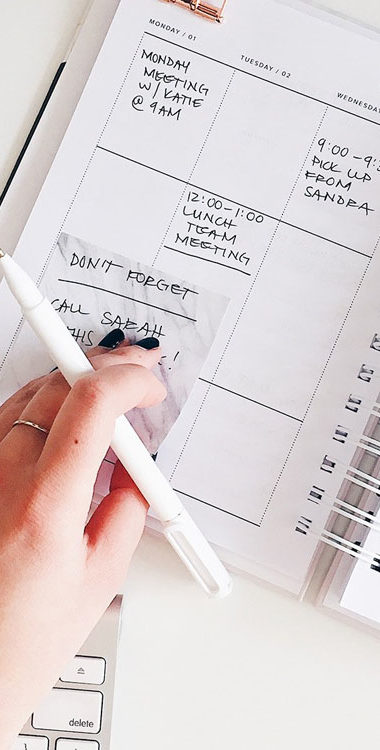 MONDAY / 01
TUESDAY / 02
WEDNESDA
MONDAY
MEETING
W/ KATIE
@ 9AM
9:00 - 9:3
PICK UP
FROM
SANDRA
12:00-1:00
LUNCH
TEAM
MEETING
DON'T FORGET
CALL SARAH
THIS
!
delete